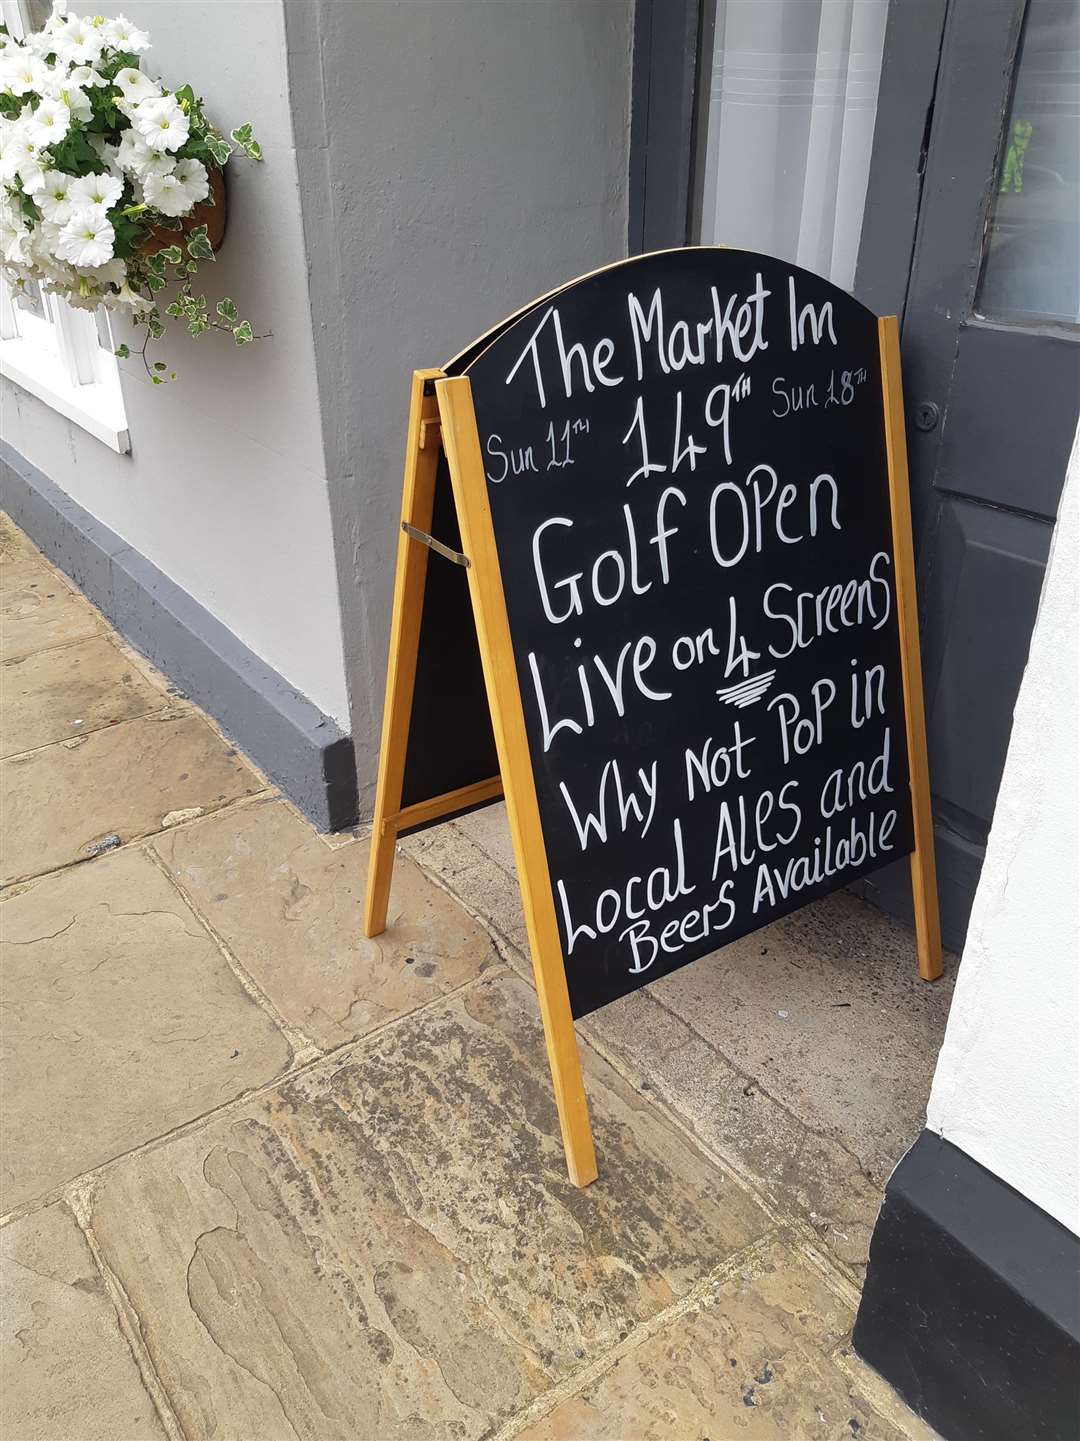 The Market Inn
Sun 11TH 149TH Sun 18TH
Golf Open
Live on 4 Screens
Why Not Pop in
Local Ales and
Beers Available